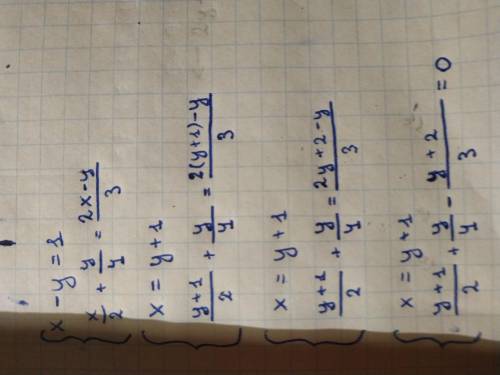 x - y = 1
x/2 + y/4 = 2x-y/3
x = y + 1
y+1/2 + y/4 = 2(y+1)-y/3
x = y + 1
y+1/2 + y/4 = 2y+2-y/3
x = y + 1
y+1/2 + y/4 - y+2/3 = 0